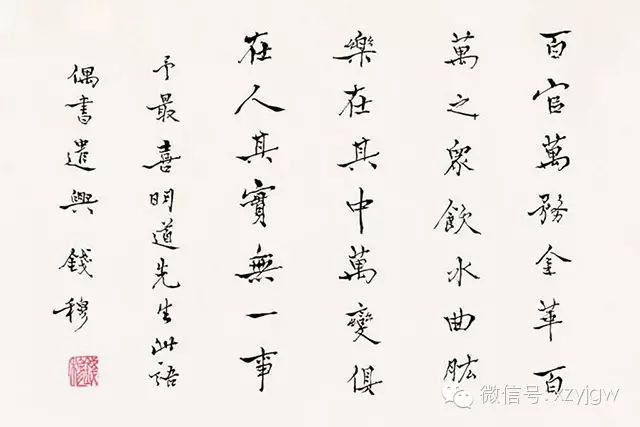 百官萬務金革百
萬之眾飲水曲肱
樂在其中萬變俱
在人其實無一事
予最喜明道先生此語
偶書遣興 錢穆
微信号: xzyjgw